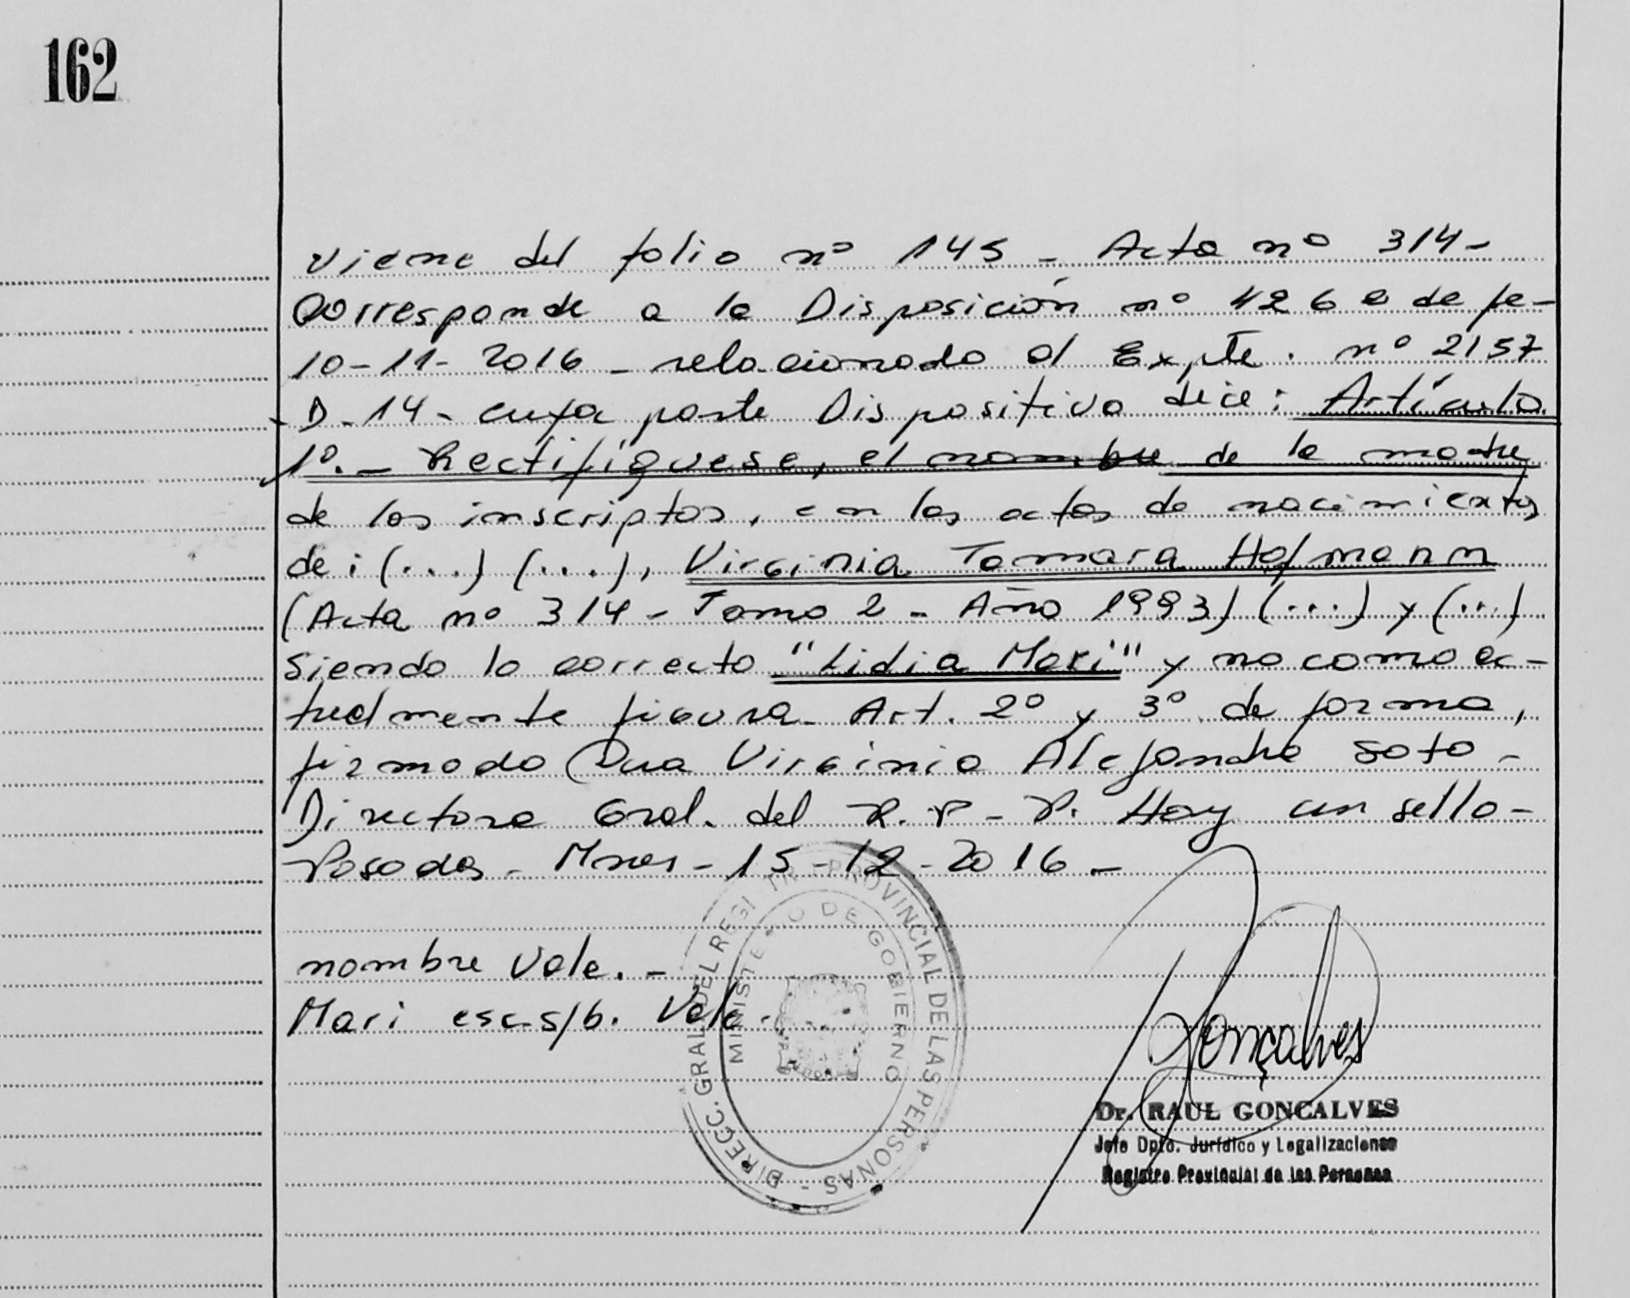 162
viene del folio nº 145 - Acta nº 314-
Corresponde a la Disposición nº 426 de fe-
10-11-2016 - relacionado al Expte. nº 2157
-D-14- cuya parte Dispositiva dice: Artículo
1º.- Rectifíquese, el nombre de la madre
de los inscriptos, en las actas de nacimientos
de: (...) (...), Virginia Tamara Hofmann
(Acta nº 314 - Tomo 2 - Año 1993) (...) y (...)
Siendo lo correcto "Lidia Mari" y no como ac-
tualmente figura. Art. 2º y 3º de forma,
firmado Dra Virginia Alejandra Soto -
Directora Gral. del R.P-P. Hay un sello-
Posadas - Mnes - 15-12-2016-
nombre Vale. -
Mari esc-s/b. Vale.
DIRECC. GRAL DEL REGISTRO PROVINCIAL DE LAS PERSONAS -
MINISTERIO DE GOBIERNO
Gonçalves
Dr. RAUL GONCALVES
Jefe Dpto. Jurídico y Legalizaciones
Registro Provincial de las Personas